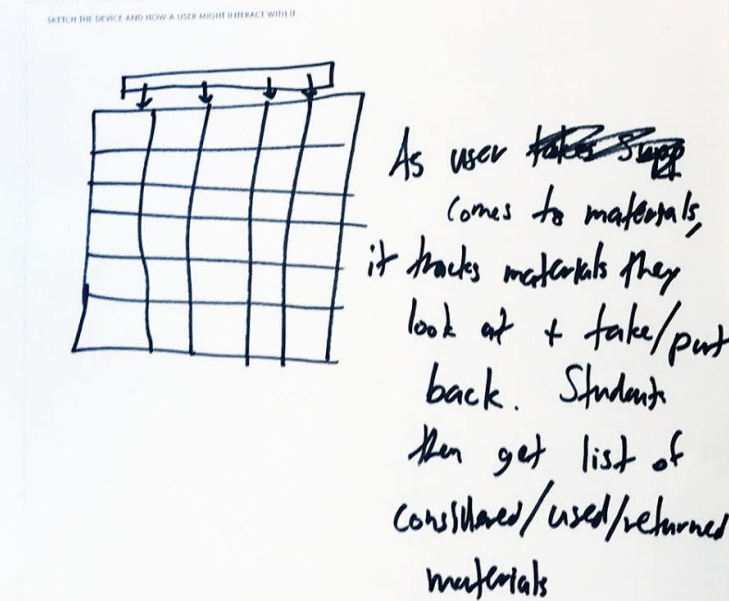 SKETCH THE DEVICE AND HOW A USER MIGHT INTERACT WITH IT
As user takes supp
comes to materials,
it tracks materials they
look at + take/put
back. Students
then get list of
considered/used/returned
materials